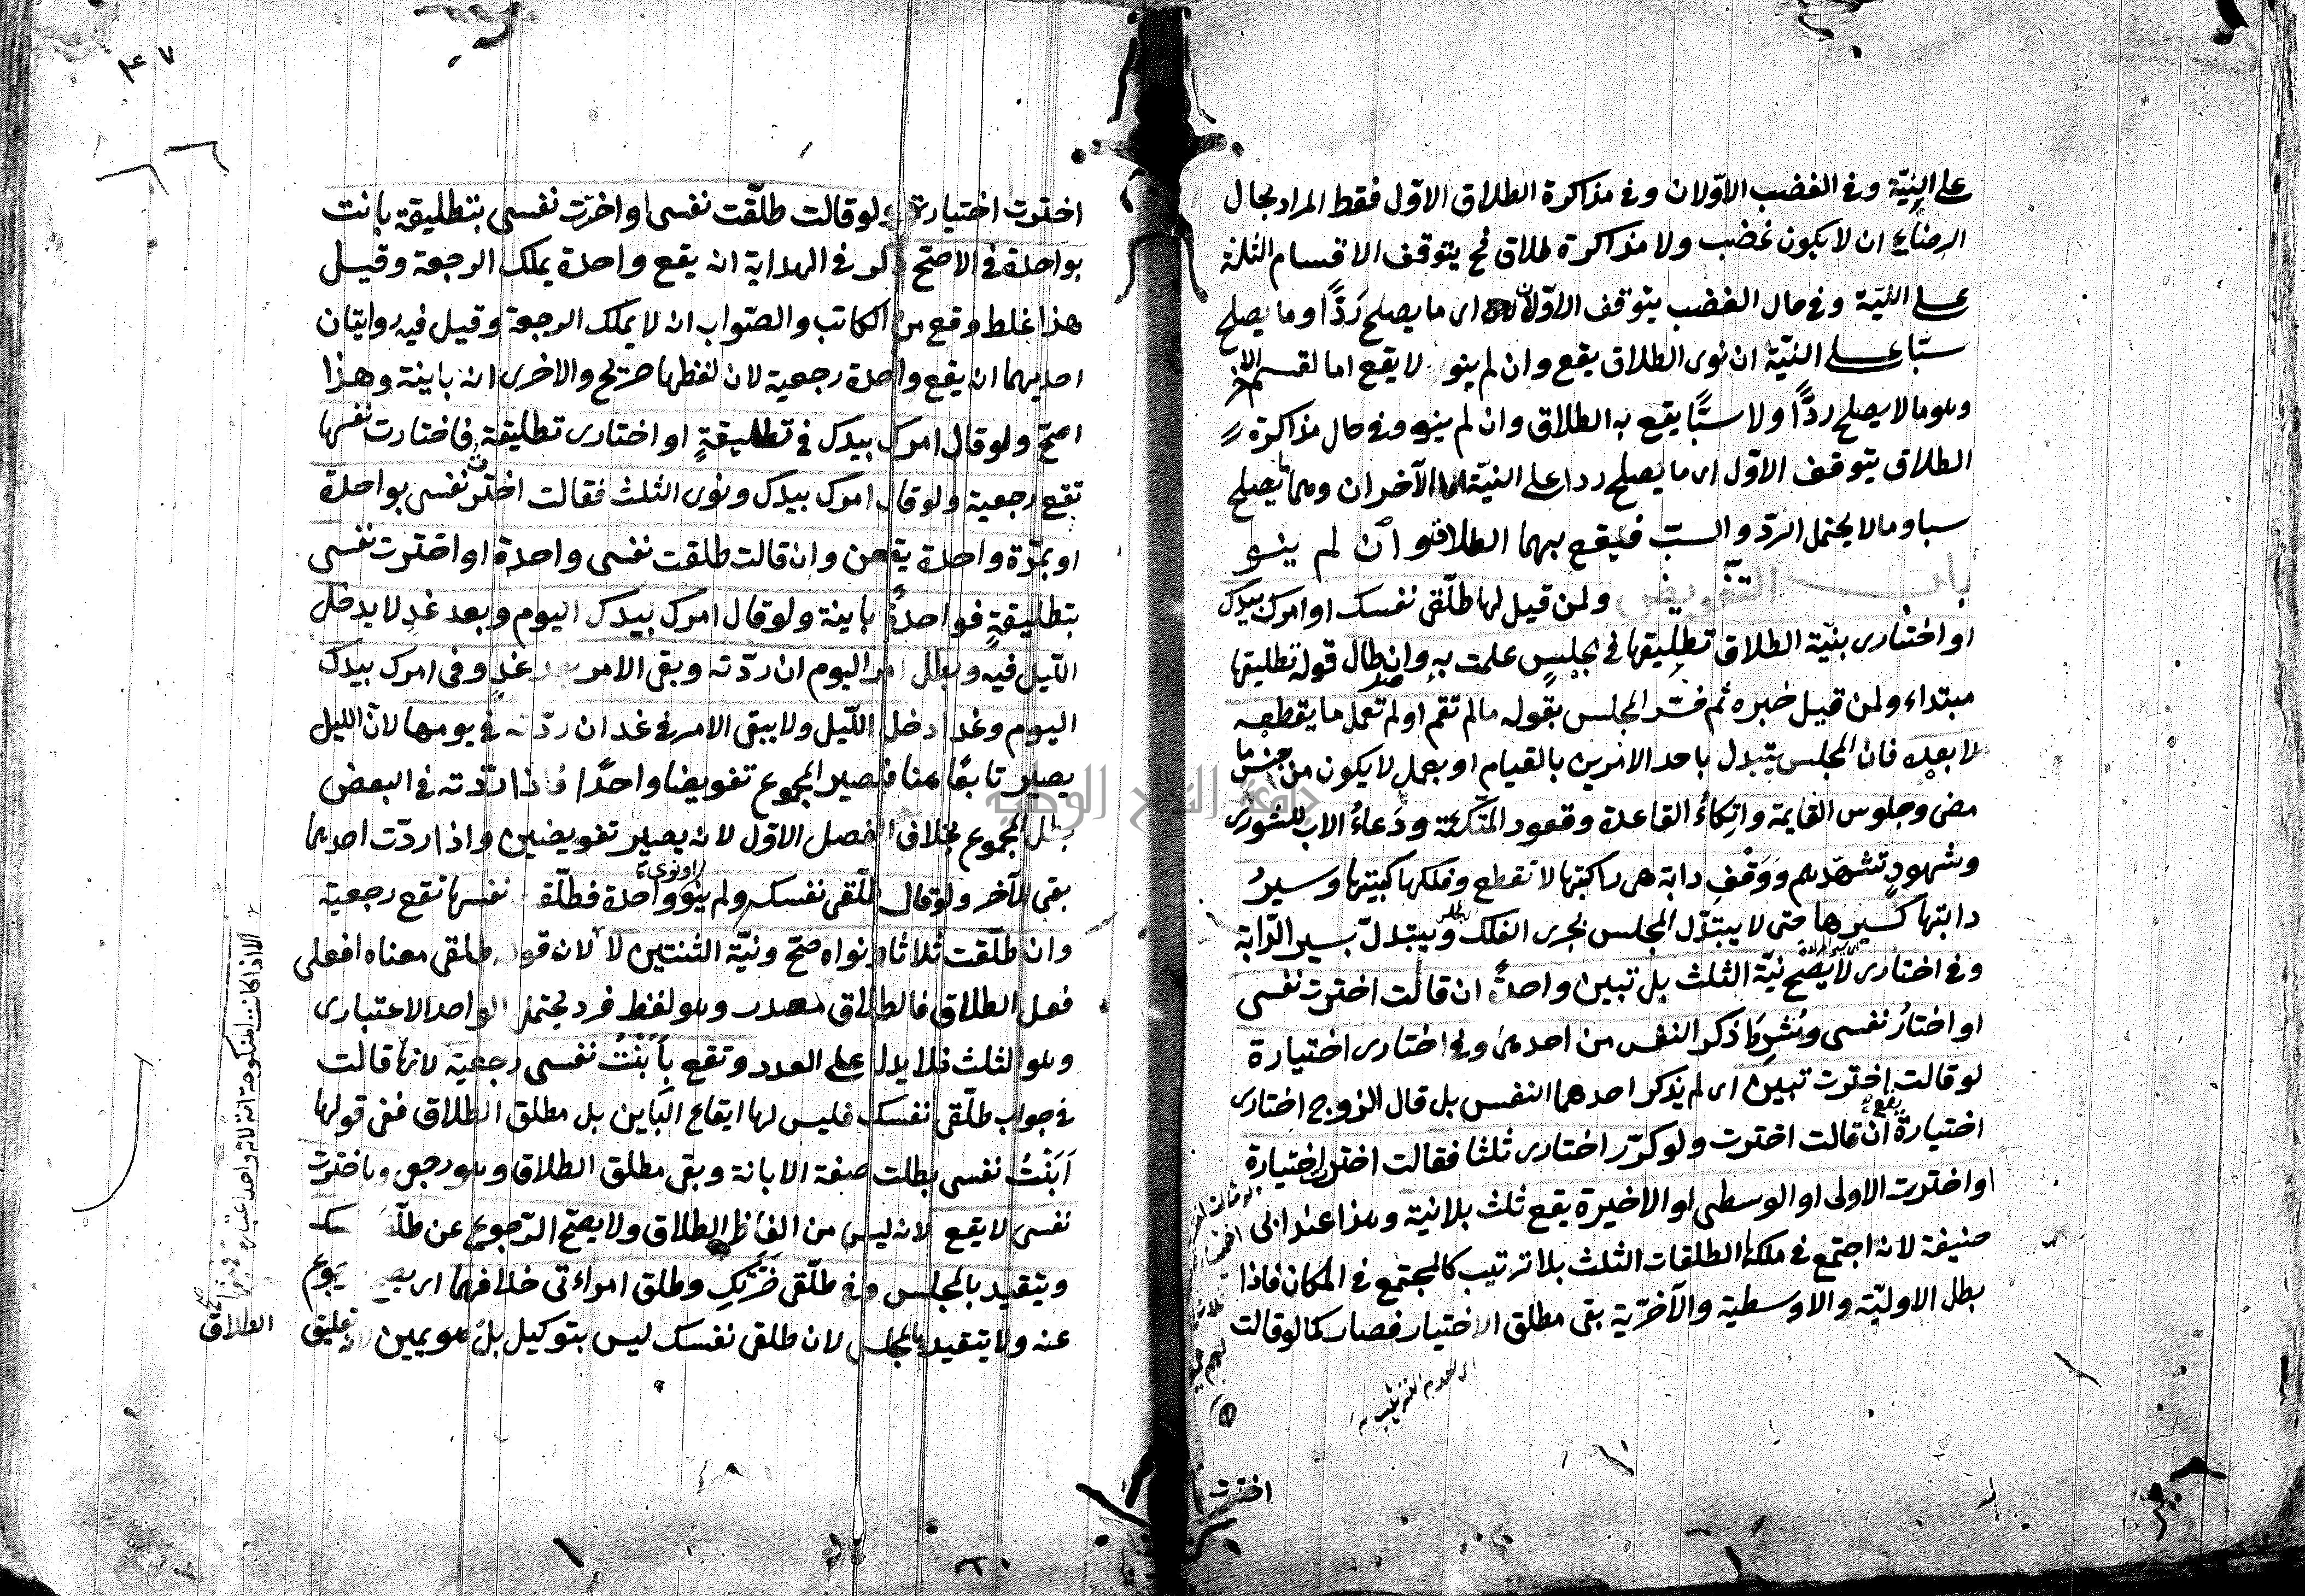 على النيّة وفى الغضب الاوّلان وفى مذاكرة الطلاق الاوّل فقط المراد بحال
الرضاء ان لا يكون غضب ولا مذاكرة طلاق فح يتوقف الاقسام الثلثة
على النيّة وفى حال الغضب يتوقف الاوّلان اى ما يصلح رَدًّا وما يصلح
سبّا على النيّة ان نوى الطلاق يقع وان لم ينو لا يقع اما لقسم الاخر
وهو ما لا يصلح ردًّا ولا سبًّا يقع به الطلاق وان لم ينو وفى حال مذاكرة
الطلاق يتوقف الاوّل اى ما يصلح ردا على النيّة الآخران وهما ما يصلح
سبا وما لا يحتمل الردّ والسبّ فيقع بهما الطلاق وان لم ينو
باب التّفويض ولمن قيل لها طلّقى نفسك او امرك بيدك
او اختارى بنيّة الطلاق تطليقها فى مجلسٍ علمت به وان طال قوله تطليقها
مبتداء ولمن قيل خبره ثم فسّر المجلس بقوله ما لم تقم او لم تعمل ما يقطعه
لا بعده فان المجلس يتبدل باحد الامرين بالقيام او بعمل لا يكون من جنس ما
مضى وجلوس القايمة واتكاءُ القاعدة وقعود المتّكئة ودُعاءُ الاب للشورى
وشهودٍ تشهّدهم ووَقْفِ دابة هى راكبتها لا نقطع وفلكها كبيتها وسيرُ
دابتها كسيرها حتى لا يتبدّل المجلس بجرى الفلك ويتبدلّ بسير الدّابة
وفى اختارى لا يصحّ نيّة الثلث بل تبين واحدةً ان قالت اخترت نفسى
او اختارُ نفسى وشُرِطَ ذكر النفس من احدهما وفى اختارى اختيارة
لو قالت اخترت تبين اى لم يذكر احدهما النفس بل قال الزوج اختارى
اختيارة يقع ان قالت اخترت ولو كرّر اختارى ثلثا فقالت اخترت اختيارة
او اخترت الاولى او الوسطى او الاخيرة يقع ثلث بلا نية وهذا عند ابى
حنيفة لانه اجتمع فى ملكها الطلقات الثلث بلا ترتيب كالمجتمع فى المكان فاذا
بطل الاوليّة والاوسطية والآخرّية بقى مطلق الاختيار فصار كما لو قالت
اى لعدم الترتيب
اخترت
اخترت اختيارة ولو قالت طلّقت نفسى او اخترت نفسى بتطليقة بانت
بواحدة فى الاصحّ ذكر فى الهداية انه يقع واحدة يملك الرجعة وقيل
هذا غلط وقع من الكاتب والصّواب انه لا يملك الرجعة وقيل فيه روايتان
احديهما انه يقع واحدة رجعية لان لفظها صريح والاخرى انه باينة وهذا
اصحّ ولو قال امرك بيدك فى تطليقةٍ او اختارى تطليقة فاختارت نفسها
تقع رجعية ولو قال امرك بيدك ونوى الثلث فقالت اخترت نفسى بواحدة
او بمرّة واحدة يقعن وان قالت طلقت نفسى واحدة او اخترت نفسى
بتطليقةٍ فواحدةٌ باينة ولو قال امرك بيدك اليوم وبعد غدٍ لا يدخل
اللّيل فيه وبطل امر اليوم ان ردّته وبقى الامر بعد غدٍ وفى امرك بيدك
اليوم وغدا دخل اللّيل ولا يبقى الامر فى غد ان ردّته فى يومها لانّ الليل
يصير تابعًا هنا فيصير المجموع تفويضا واحدًا فاذا ردّته فى البعض
بطل المجموع بخلاف الفصل الاوّل لانه يصير تفويضين واذا ردّت احدهما
بقى الآخر ولو قال طلّقى نفسك ولم ينو او نوى واحدة فطلّقت نفسها تقع رجعية
وان طلّقت ثلاثا ونواه صحّ ونيّة الثنتين لا لان قوله طلقى معناه افعلى
فعل الطلاق فالطلاق مصدر وهو لفظ فرد يحتمل الواحد الاعتبارى
وهو الثلث فلا يدل على العدد وتقع بأَبَنْتُ نفسى رجعية لانها قالت
فى جواب طلّقى نفسك فليس لها ايقاع البَاين بل مطلق الطلاق ففى قولها
اَبَنْتُ نفسى بطلت صفة الابانة وبقى مطلق الطلاق وهو رجعى وباخترت
نفسى لا يقع لانه ليس من الفاظ الطلاق ولا يصحّ الرّجوع عن طلّقى نفسك
ويتقيد بالمجلس وفى طلّقى ضَرَّتكِ وطلق امراءتى خلافهما اى يصح الرجوع
عنه ولا يتقيد بالمجلس لان طلقى نفسك ليس بتوكيل بل هو يمين لانه تعليق
الطلاق
الا اذا كانت المنكوحة امة لانه واحد اعتبارى فى حقها
٤٧
جامعة النجاح الوطنية